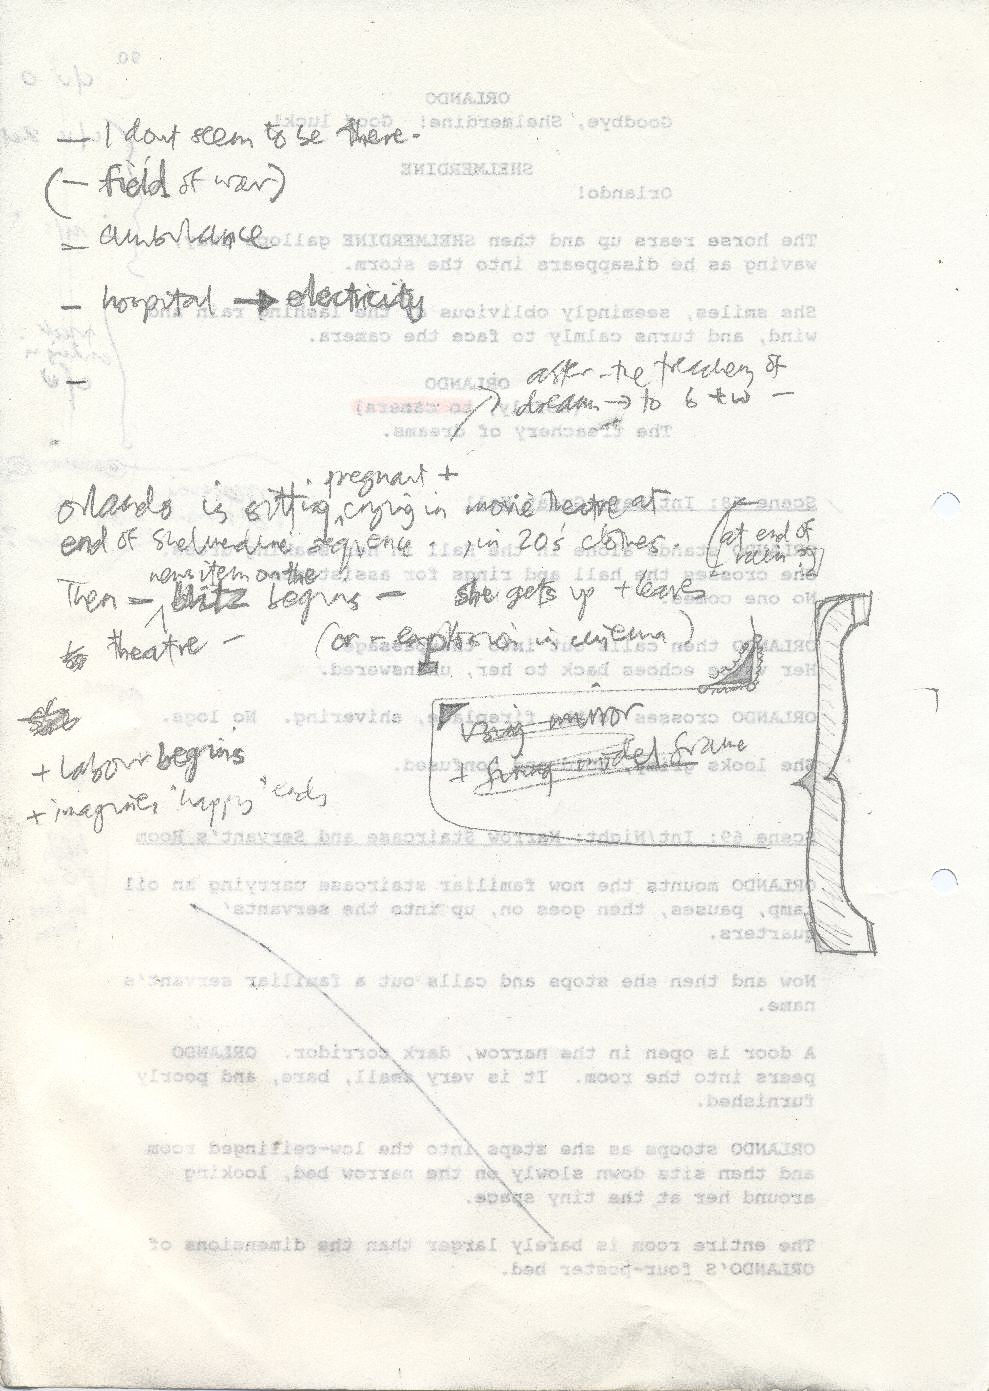 — I dont seem to be there.
(— field of war)
— ambulance
— hospital → electricity
—
after the treachery of
dream → to b + w —
pregnant +
Orlando is sitting, crying in movie theatre at
end of Shelmerdine sequence. in 20s' clothes. (at end of
news item on the
Then — blitz begins — she gets up + leaves
theatre — (or — explosion in cinema)
using mirror
+ model frame
+ labour begins
+ imagines "happy" ends
90
ORLANDO
Goodbye, Shelmerdine! Good luck!
SHELMERDINE
Orlando!
The horse rears up and then SHELMERDINE gallops
waving as he disappears into the storm.
She smiles, seemingly oblivious of the lashing rain and
wind, and turns calmly to face the camera.
ORLANDO
to camera)
The treachery of dreams.
Scene 68: Int
ORLANDO stands alone in the hall in her
She crosses the hall and rings for assist
No one comes.
ORLANDO then calls out into the passage
Her voice echoes back to her, unanswered.
ORLANDO crosses the fireplace, shivering. No logs.
She looks confused.
Scene 69: Int/Night: Narrow Staircase and Servant's Room
ORLANDO mounts the now familiar staircase carrying an oil
lamp, pauses, then goes on, up into the servants'
quarters.
Now and then she stops and calls out a familiar servant's
name.
A door is open in the narrow, dark corridor. ORLANDO
peers into the room. It is very small, bare, and poorly
furnished.
ORLANDO stoops as she steps into the low-ceilinged room
and then sits down slowly on the narrow bed, looking
around her at the tiny space.
The entire room is barely larger than the dimensions of
ORLANDO'S four-poster bed.